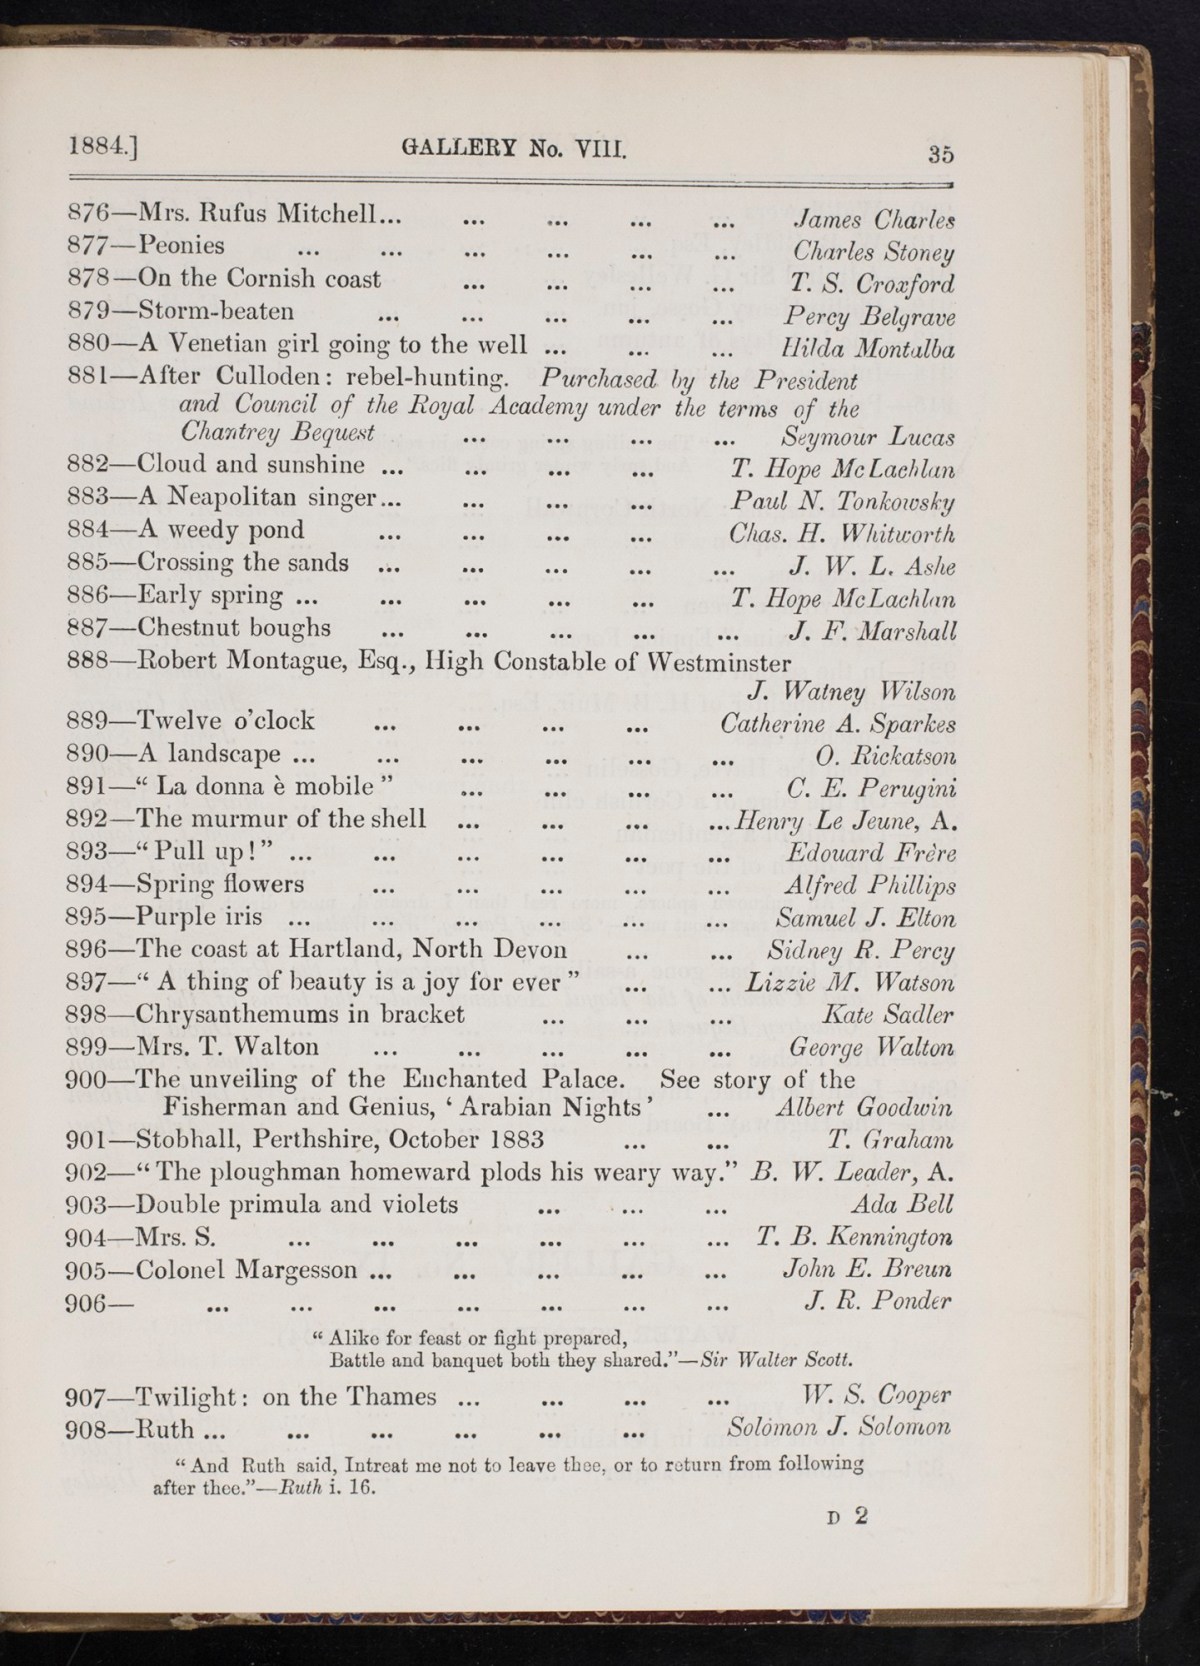 1884.] GALLERY No. VIII. 35
876—Mrs. Rufus Mitchell... ... ... ... ... James Charles
877—Peonies ... ... ... ... ... ... Charles Stoney
878—On the Cornish coast ... ... ... ... T. S. Croxford
879—Storm-beaten ... ... ... ... ... Percy Belgrave
880—A Venetian girl going to the well ... ... ... Hilda Montalba
881—After Culloden: rebel-hunting. Purchased by the President
and Council of the Royal Academy under the terms of the
Chantrey Bequest ... ... ... ... Seymour Lucas
882—Cloud and sunshine ... ... ... ... T. Hope McLachlan
883—A Neapolitan singer... ... ... ... Paul N. Tonkowsky
884—A weedy pond ... ... ... ... Chas. H. Whitworth
885—Crossing the sands ... ... ... ... ... J. W. L. Ashe
886—Early spring ... ... ... ... ... T. Hope McLachlan
887—Chestnut boughs ... ... ... ... ... J. F. Marshall
888—Robert Montague, Esq., High Constable of Westminster
J. Watney Wilson
889—Twelve o'clock ... ... ... ... Catherine A. Sparkes
890—A landscape ... ... ... ... ... ... O. Rickatson
891—“ La donna è mobile ” ... ... ... ... C. E. Perugini
892—The murmur of the shell ... ... ... ...Henry Le Jeune, A.
893—“ Pull up! ” ... ... ... ... ... ... Edouard Frère
894—Spring flowers ... ... ... ... ... Alfred Phillips
895—Purple iris ... ... ... ... ... ... Samuel J. Elton
896—The coast at Hartland, North Devon ... ... Sidney R. Percy
897—“ A thing of beauty is a joy for ever ” ... ... Lizzie M. Watson
898—Chrysanthemums in bracket ... ... ... Kate Sadler
899—Mrs. T. Walton ... ... ... ... ... George Walton
900—The unveiling of the Enchanted Palace. See story of the
Fisherman and Genius, ‘ Arabian Nights ’ ... Albert Goodwin
901—Stobhall, Perthshire, October 1883 ... ... T. Graham
902—“ The ploughman homeward plods his weary way.” B. W. Leader, A.
903—Double primula and violets ... ... ... Ada Bell
904—Mrs. S. ... ... ... ... ... ... T. B. Kennington
905—Colonel Margesson ... ... ... ... ... John E. Breun
906— ... ... ... ... ... ... ... J. R. Ponder
“ Alike for feast or fight prepared,
Battle and banquet both they shared.”—Sir Walter Scott.
907—Twilight: on the Thames ... ... ... ... W. S. Cooper
908—Ruth ... ... ... ... ... ... Solomon J. Solomon
“ And Ruth said, Intreat me not to leave thee, or to return from following
after thee.”—Ruth i. 16.
D 2